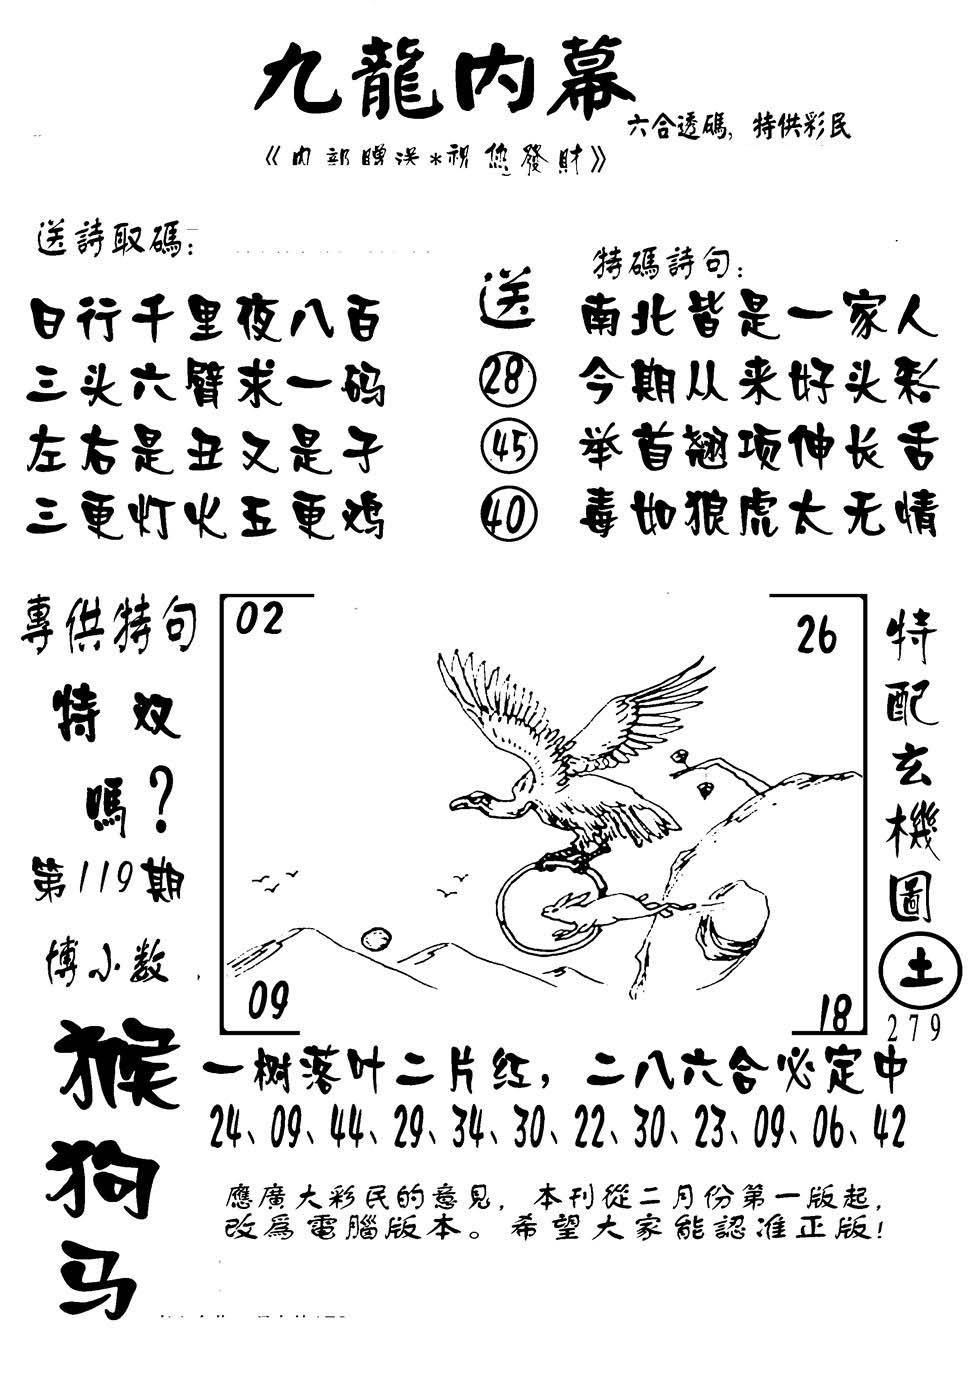 九龍内幕
六合透碼，特供彩民
《内部贈送*祝您發財》
送詩取碼：
日行千里夜八百
三头六臂求一码
左右是丑又是子
三更灯火五更鸡
送
28
45
40
特碼詩句：
南北皆是一家人
今期从来好头彩
举首翘项伸长舌
毒如狼虎太无情
專供特句
特效
嗎？
第119期
博小数
猴
狗
马
02
26
09
18
特配玄機圖
土
279
一树落叶二片红，二八六合必定中
24、09、44、29、34、30、22、30、23、09、06、42
應廣大彩民的意見，本刊從二月份第一版起，
改爲電腦版本。希望大家能認准正版！